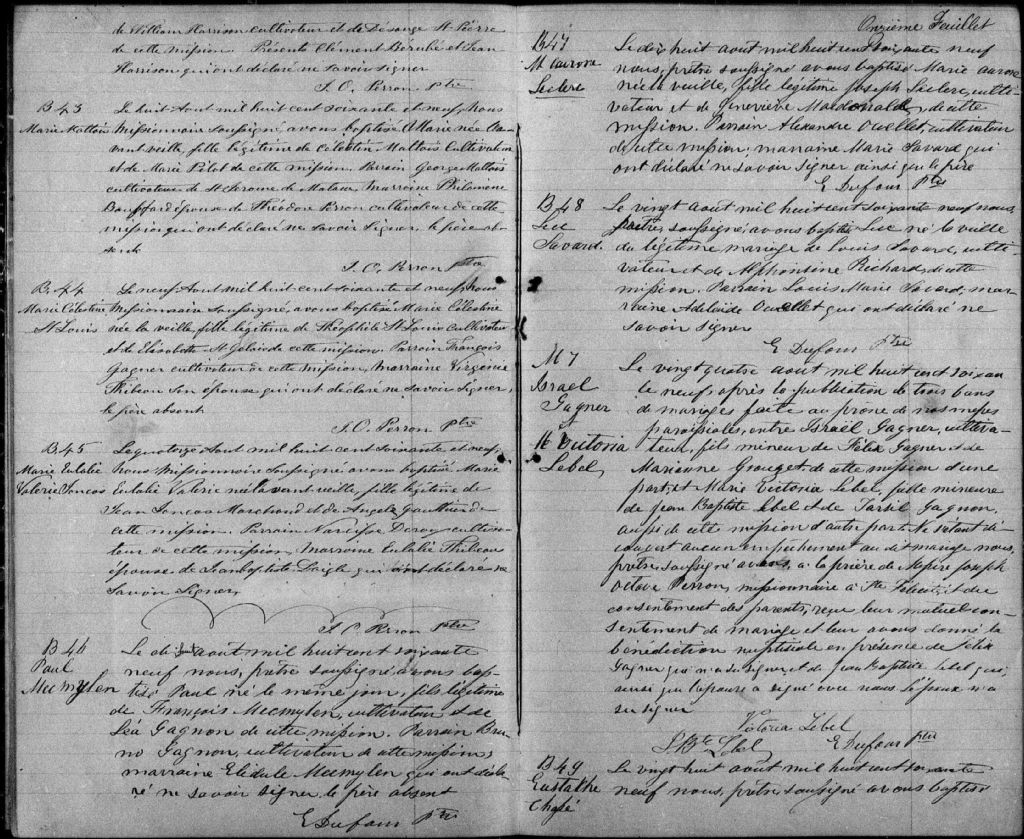 de William Harrison cultivateur et de Désange St Pierre
de cette mission. Présents Clément Bérubé et Jean
Harrison qui ont déclaré ne savoir signer
J. O. Perron ptre
B 43
Marie Maltais
Le huit Aout mil huit cent soixante et neuf, nous
Missionnaire soussigné, avons baptisé Marie née l'a-
vant veille, fille légitime de Célestin Maltais Cultivateur
et de Marie Pilot de cette mission. Parrain George Maltais
cultivateur de St Jerome de Matane Marraine Philomene
Bouffard épouse de Théodore Perron cultivateur de cette
mission qui ont déclaré ne savoir signer, le père ab-
sent
J. O. Perron ptre
B. 44
Marie Célestine
St Louis
Le neuf Aout mil huit cent soixante et neuf, nous
Missionnaire soussigné, avons baptisé Marie Célestine
née la veille, fille légitime de Théophile St Louis Cultivateur
et de Elisabeth St Gelais de cette mission. Parrain François
Gagner cultivateur de cette mission, Marraine Virginie
Thibeau son épouse qui ont déclaré ne savoir signer,
le père absent
J. O. Perron ptre
B. 45
Marie Eulalie
Valerie Joncas
Le quatorze Aout mil huit cent soixante et neuf,
nous Missionnaire soussigné avons baptisé Marie
Eulalie Valerie née l'avant veille, fille légitime de
Jean Joncas Marchand et de Angele Gauthier de
cette mission. Parrain Narcisse Deroy cultiva-
teur de cette mission, Marraine Eulalie Thibeau
épouse de Jean baptiste Daigle qui ont déclaré ne
savoir signer,
J. O. Perron ptre
B 46
Paul
Mecmylen
Le dix huit aout mil huit cent soixante
neuf nous, prêtre soussigné avons bap-
tisé Paul né le même jour, fils légitime
de François Mecmylen, cultivateur et de
Léa Gagnon de cette mission. Parrain Bru-
no Gagnon, cultivateur de cette mission,
marraine Elidule Mecmylen qui ont décla-
ré ne savoir signer le père absent
E Dufour ptre
Onzième Feuillet
B47
M Aurore
Leclerc
Le dix huit aout mil huit cent soixante neuf
nous, prêtre soussigné avons baptisé Marie aurore
née la veille, fille légitime Joseph Leclerc, culti-
vateur et de Geneviève Macdonald, de cette
mission. Parrain Alexandre Ouellet, cultivateur
de cette mission, marraine Marie Savard qui
ont déclaré ne savoir signer ainsi que le père
E Dufour Ptre
B 48
Luc
Savard.
Le vingt aout mil huit cent soixante neuf nous,
prêtre, soussigné, avons baptisé Luc né la veille
du légitime mariage de Louis Savard, culti-
vateur et de Alphonsine Richard, de cette
mission. Parrain Louis Marie Savard, mar-
raine Adelaide Ouellet qui ont déclaré ne
savoir signer
E Dufour Ptre
M 7
Israel
Gagner
&
M Victoria
Lebel,
Le vingt quatre aout mil huit cent soixan
te neuf, après la publication de trois bans
de mariages faite au prone de nos messes
paroissiales, entre Israël Gagner, cultiva-
teur, fils mineur de Félix Gagner et de
Marianne Grouget de cette mission d'une
part, et Marie Victoria Lebel, fille mineure
de Jean Baptiste Lebel et de Gagnon,
aussi de cette mission d'autre part. Ne s'étant dé-
couvert aucun empêchement au dit mariage nous,
prêtre soussigné avons, à la prière de Messire Joseph
Octave Perron, missionnaire à Ste Félicité et du
consentement des parents, reçu leur mutuel con-
sentement de mariage et leur avons donné la
bénédiction nuptiale en présence de Félix
Gagner qui n'a su signer, et de Jean Baptiste Lebel qui,
ainsi que l'épouse a signé avec nous. L'époux n'a
su signer
Victoria Lebel
J. Bte Lebel E Dufour Ptre
B 49
Eustathe
Le vingt huit aout mil huit cent soixante
neuf nous, prêtre, soussigné avons baptisé